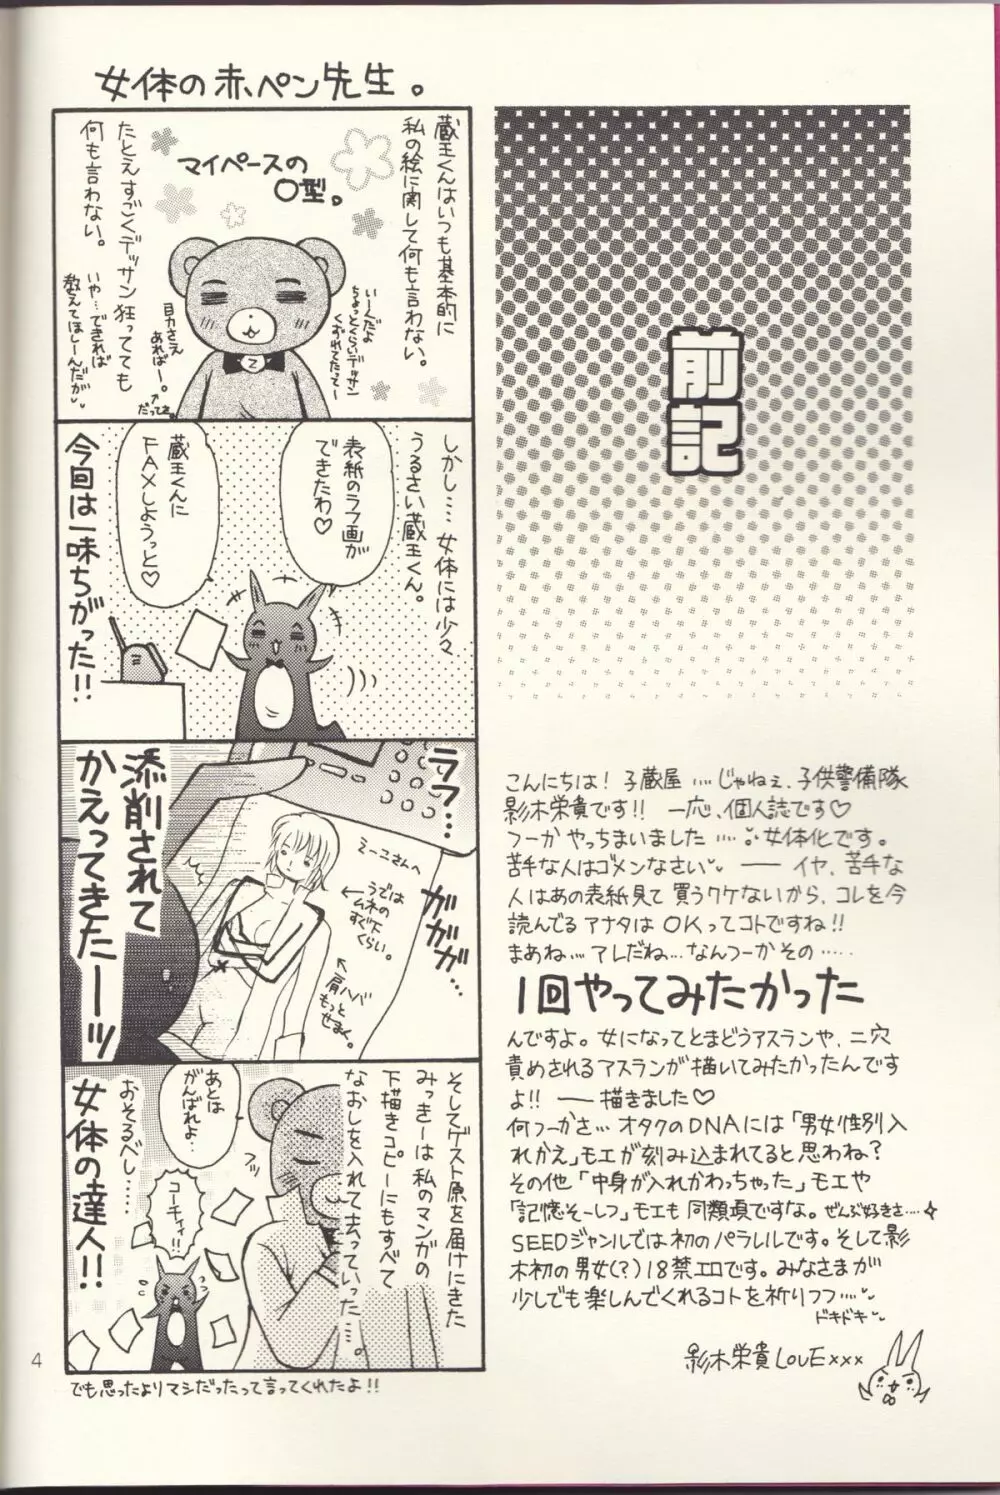 前記
こんにちは！子蔵屋…じゃねぇ、子供警備隊
影木栄貴です!! 一応、個人誌です♡
つーか やっちまいました……女体化です。
苦手な人はゴメンなさい ── イヤ、苦手な
人はあの表紙見て 買うワケないから、コレを今
読んでる アナタは OK ってコトですね!!
まあね… アレだね… なんつーかその……
1回やってみたかった
んですよ。女になってとまどうアスランや、二穴
責めされるアスランが描いてみたかったんです
よ!! ── 描きました♡
何つーかさ… オタクのDNAには「男女性別入
れかえ」モエが刻み込まれてると思わね？
その他「中身が入れかわっちゃった」モエや
「記憶そーしつ」モエも同類項ですな。ぜんぶ好きさ…
SEEDジャンルでは初のパラレルです。そして影
木初の男女(?)18禁エロです。みなさまが
少しでも楽しんでくれるコトを祈りつつ…
ドキドキ
影木栄貴LovE×××
女体の赤ペン先生。
蔵王くんはいつも基本的に
私の絵に関して何も言わない。
マイペースの
O型。
たとえすごくデッサン狂ってても
何も言わない。
いーんだよ
ちょっとくらいデッサン
くずれてたってー
目力さえ
あればー。
だってさ。
いや…できれば
教えてほしーんだが
Z
しかし……女体には少々
うるさい蔵王くん。
表紙のラフ画が
できたわ♡
蔵王くんに
FAXしようっと♡
今回は一味ちがった!!
ラフ…
ガガガ…
みーこさんへ
うでは
ムネの
すぐ下
くらい。
肩ハバ
もっと
せまく。
添削されて
かえってきたーーッ
そしてゲスト原を届けにきた
みっきーは私のマンガの
下描きコピーにもすべて
なおしを入れて去っていった…。
あとは
がんばれよ…
フッ
コーチィ!!
おそるべし……
女体の達人!!
でも思ったよりマシだったって言ってくれたよ!!
4